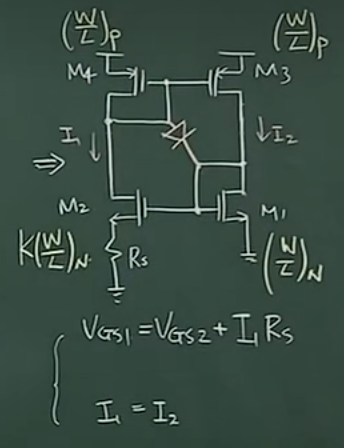 (W/L)P (W/L)P
M4 M3
I1 I2
⇒
M2 M1
K(W/L)N Rs (W/L)N
VGS1 = VGS2 + I1 Rs
I1 = I2